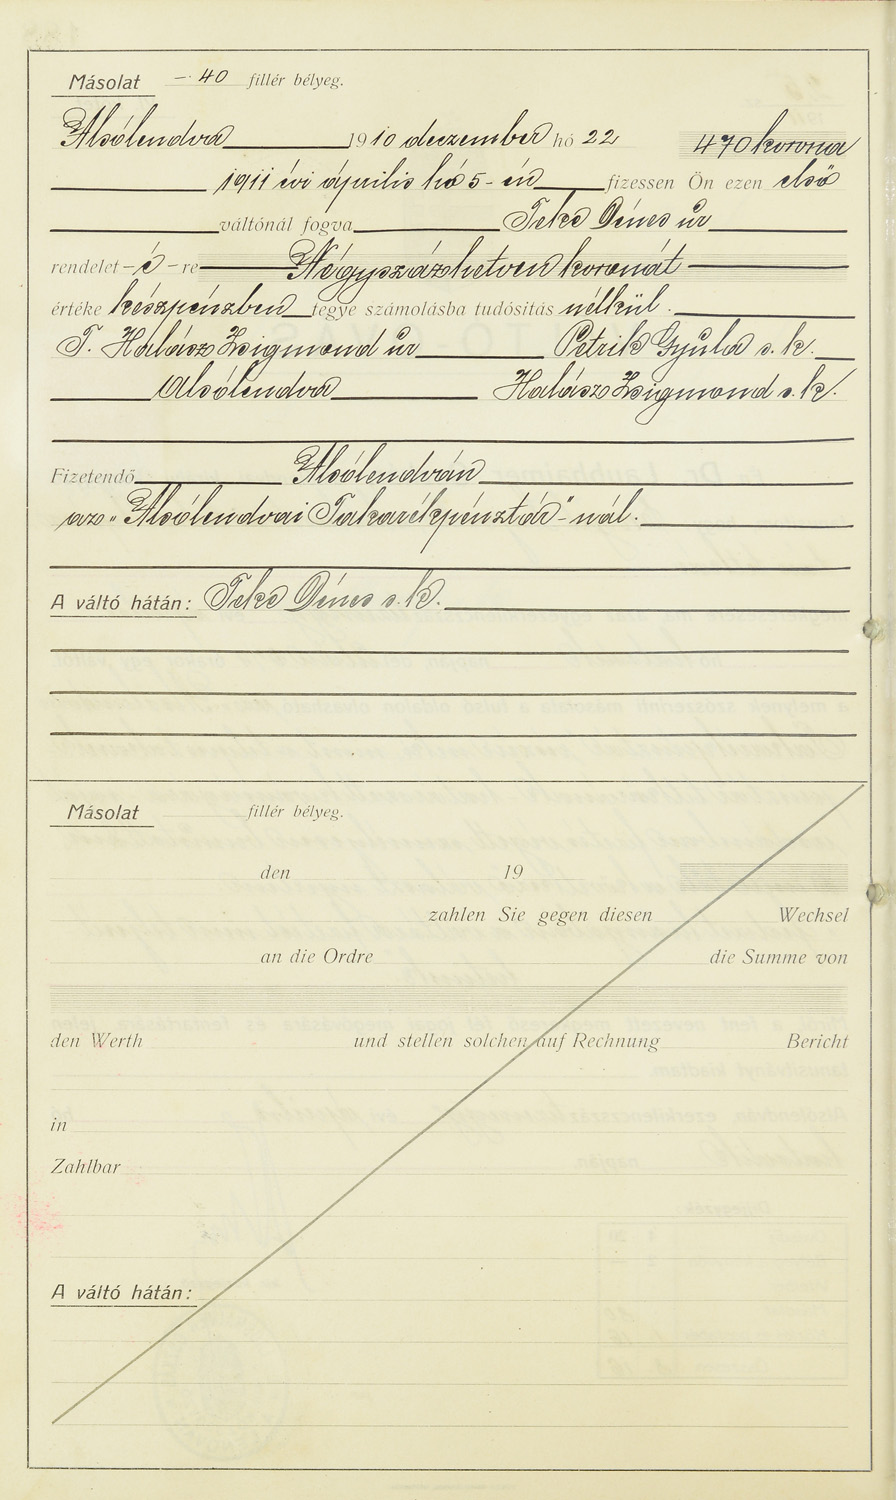 Másolat —·40 fillér bélyeg.
Alsólendva 1910 deczember hó 22 470 korona
1911 évi április hó 5-én fizessen Ön ezen első
váltónál fogva Teke Dénes úr
rendelet-é-re Négyszázhetven koronát
értéke készpénzben tegye számolásba tudósitás nélkül.
T. Halász Zsigmond úr Petrik Gyula s. k.
Alsólendva Halász Zsigmond s. k.
Fizetendő Alsólendván
az „Alsólendvai Takarékpénztár"-nál.
A váltó hátán: Teke Dénes s. k.
Másolat fillér bélyeg.
den 19
zahlen Sie gegen diesen Wechsel
an die Ordre die Summe von
den Werth und stellen solchen auf Rechnung Bericht
in
Zahlbar
A váltó hátán: